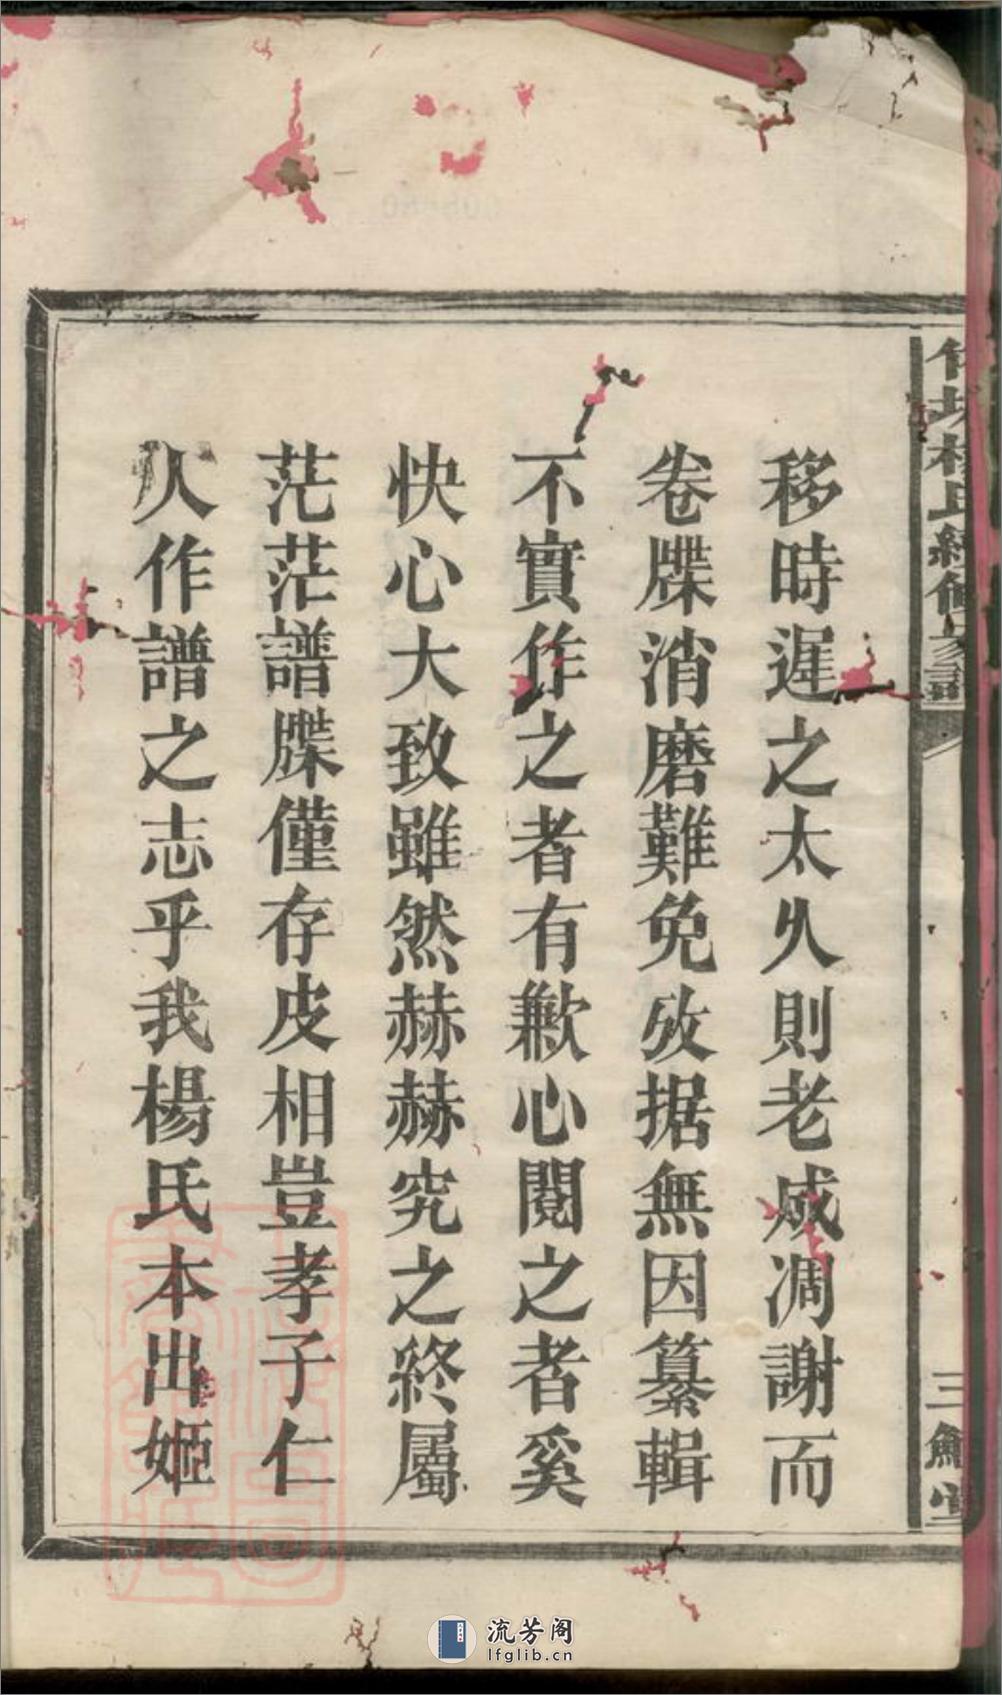 移時遲之太久則老成凋謝而
卷牒消磨難免攷据無因纂輯
不實作之者有歉心閱之者奚
快心大致雖然赫赫究之終屬
茫茫譜牒僅存皮相豈孝子仁
人作譜之志乎我楊氏本出姬
楊氏續修
三
堂
流芳阁
lfglib.cn